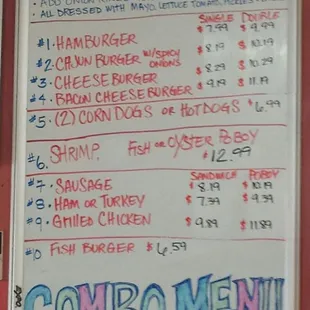 ALL DRESSED WITH MAYO, LETTUCE TOMATO, PICKLES
SINGLE DOUBLE
#1 · HAMBURGER $7.99 $9.99
#2 · CAJUN BURGER W/SPICY ONIONS $8.19 $10.19
#3 · CHEESEBURGER $8.29 $10.29
#4 · BACON CHEESEBURGER $9.19 $11.19
#5 · (2) CORNDOGS OR HOTDOGS $6.99
#6. SHRIMP, FISH OR OYSTER POBOY $12.99
SANDWICH POBOY
#7 · SAUSAGE $8.19 $10.19
#8 · HAM OR TURKEY $7.39 $9.39
#9 · GRILLED CHICKEN $9.89 $11.89
#10 FISH BURGER $6.59
COMBO MENU